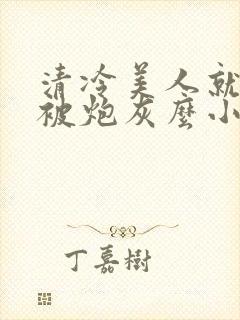 清冷美人就
被炮灰麼小
丁嘉樹